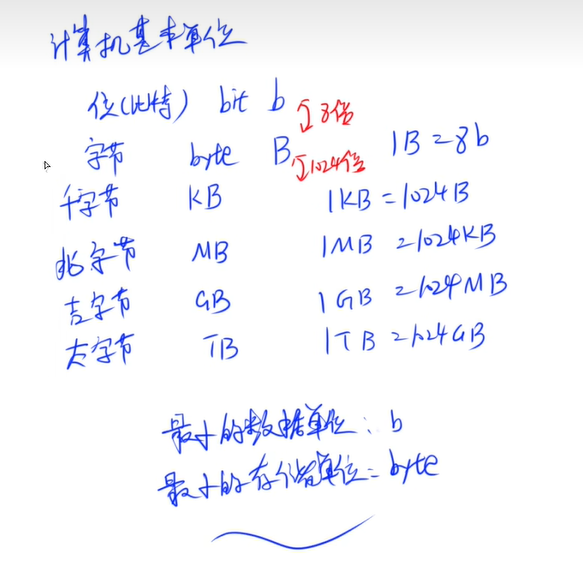 计算机基本单位
位(比特) bit b
8倍
字节 byte B 1B=8b
1024倍
千字节 KB 1KB=1024B
兆字节 MB 1MB=1024KB
吉字节 GB 1GB=1024MB
太字节 TB 1TB=1024GB
最小的数据单位: b
最小的存储单位=byte